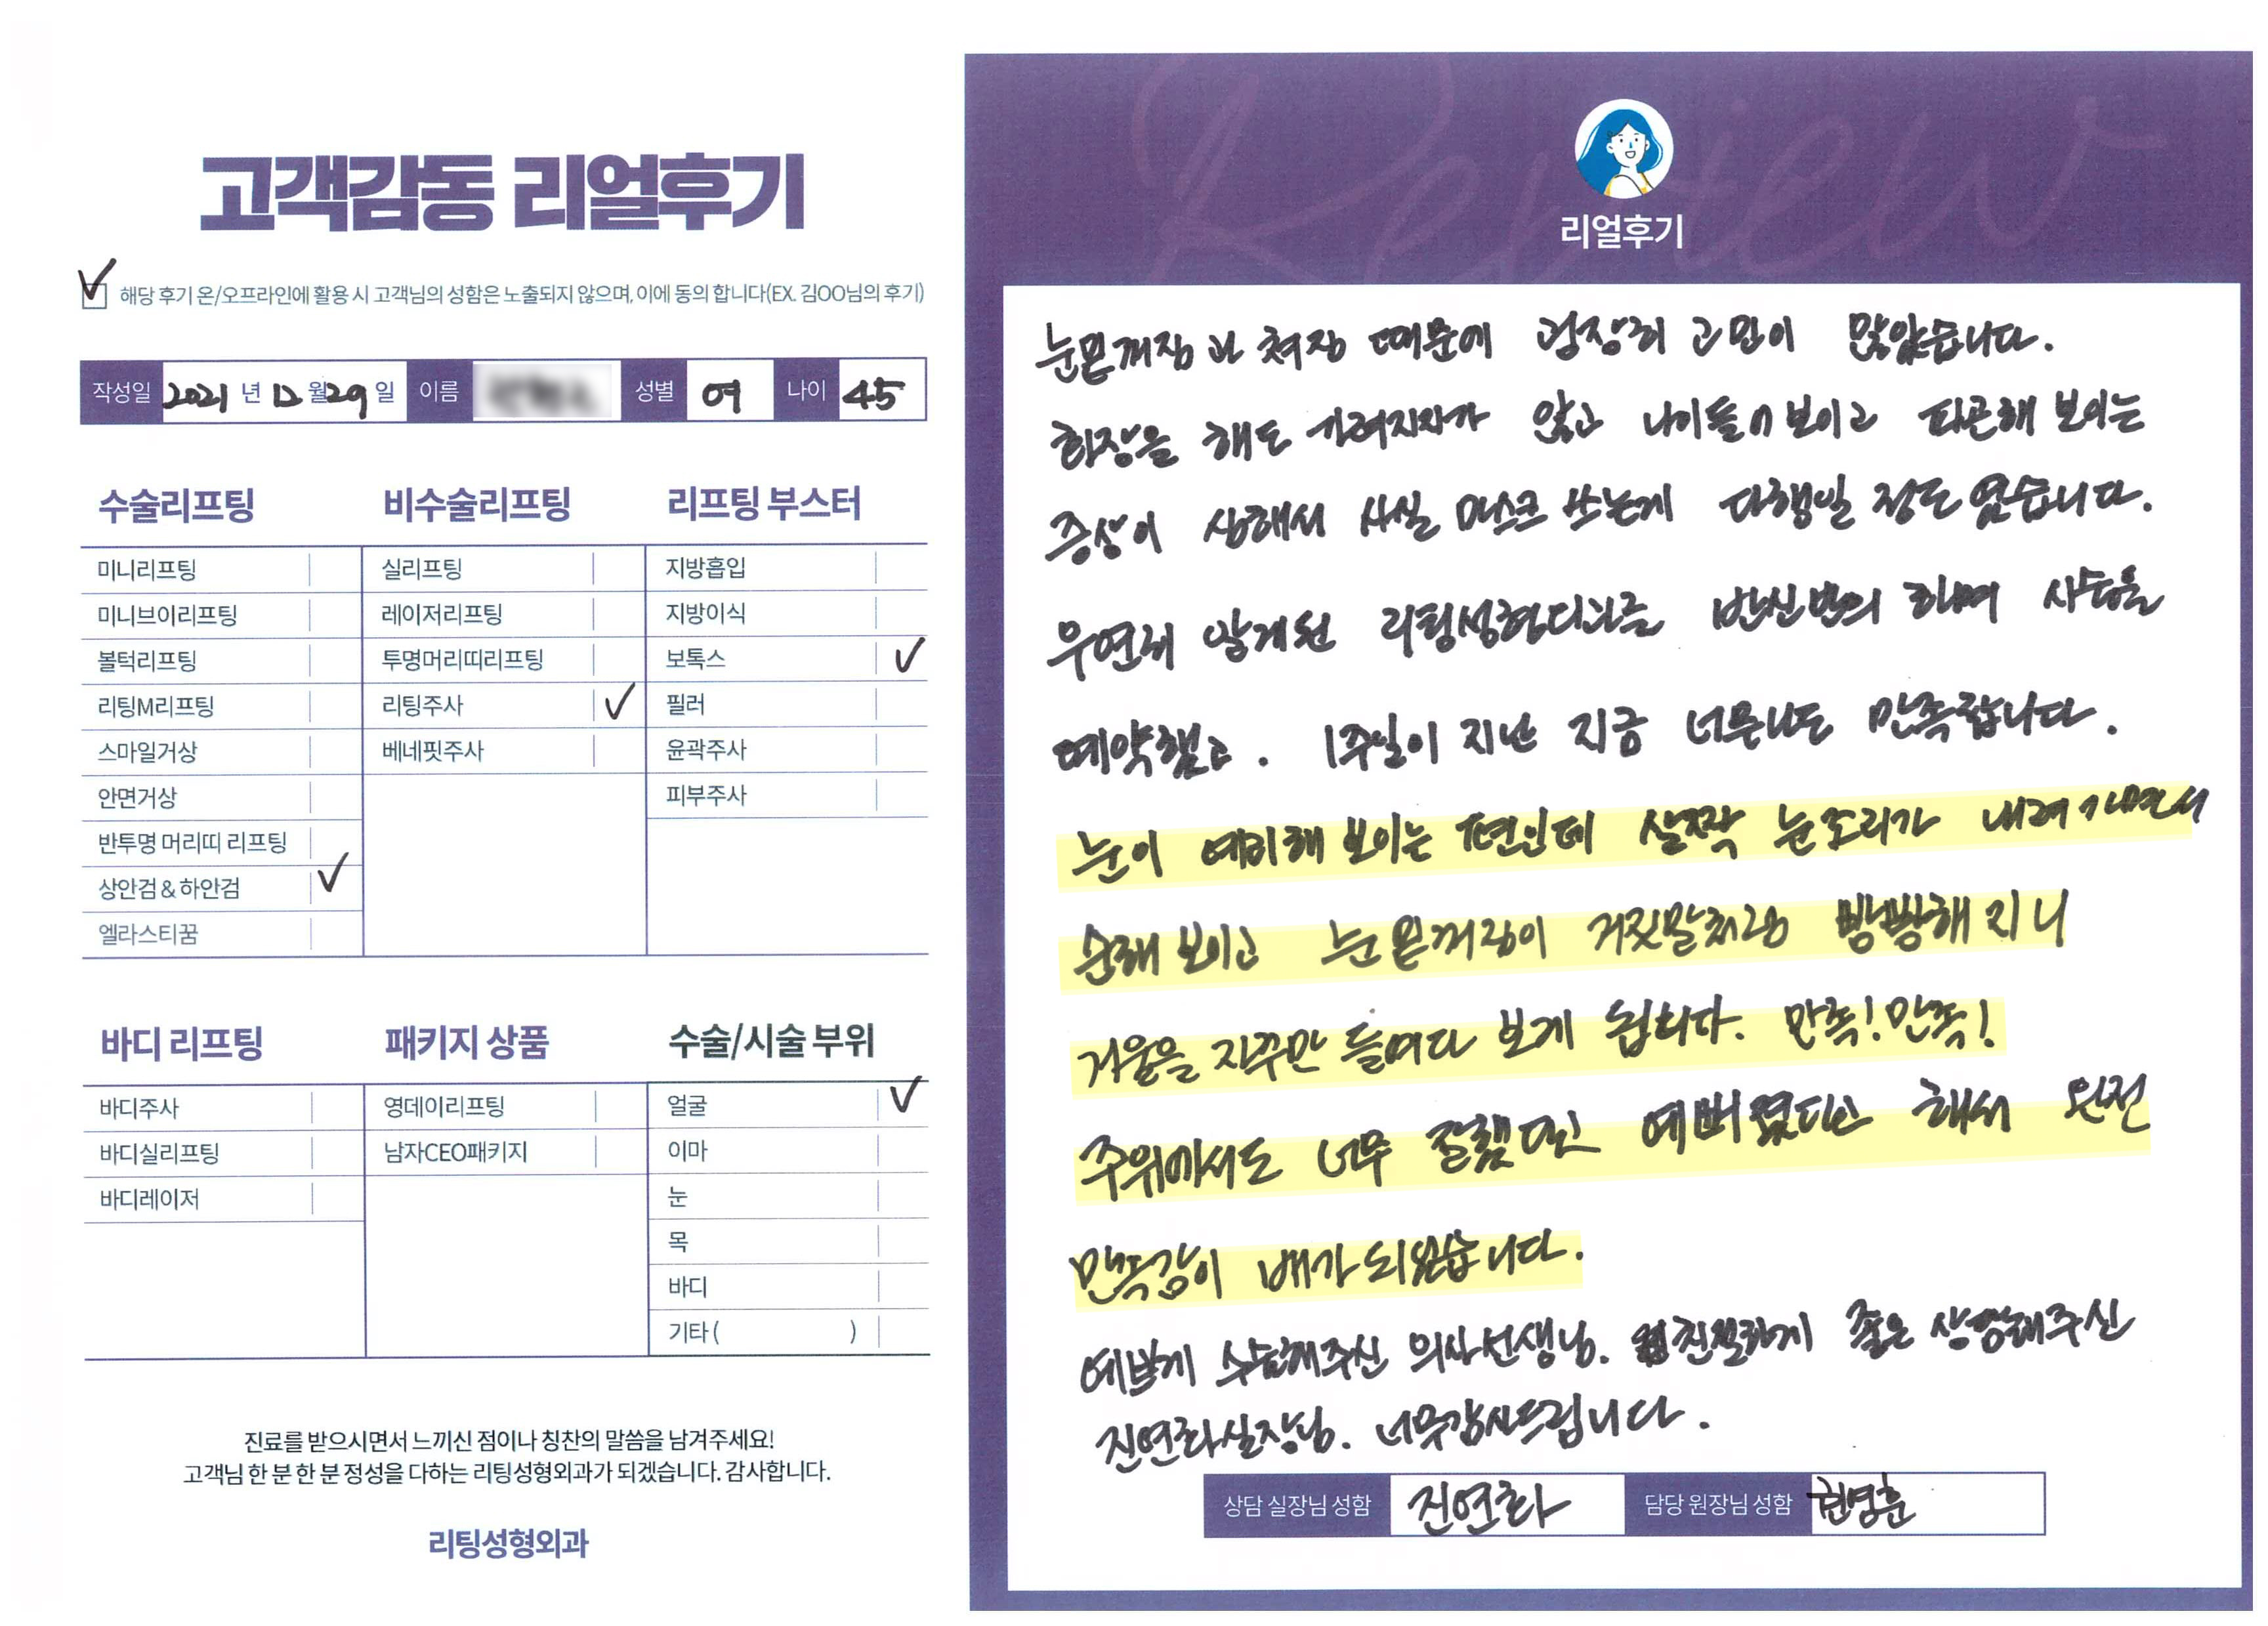 고객감동 리얼후기
해당 후기 온/오프라인에 활용 시 고객님의 성함은 노출되지 않으며, 이에 동의 합니다(EX. 김OO님의 후기)
작성일 2021 년 12 월 29 일 이름 성별 여 나이 45
수술리프팅
미니리프팅
미니브이리프팅
볼턱리프팅
리팅M리프팅
스마일거상
안면거상
반투명 머리띠 리프팅
상안검 & 하안검
엘라스티꿈
비수술리프팅
실리프팅
레이저리프팅
투명머리띠리프팅
리팅주사
베네핏주사
리프팅 부스터
지방흡입
지방이식
보톡스
필러
윤곽주사
피부주사
바디 리프팅
바디주사
바디실리프팅
바디레이저
패키지 상품
영데이리프팅
남자CEO패키지
수술/시술 부위
얼굴
이마
눈
목
바디
기타 ( )
진료를 받으시면서 느끼신 점이나 칭찬의 말씀을 남겨주세요!
고객님 한 분 한 분 정성을 다하는 리팅성형외과가 되겠습니다. 감사합니다.
리팅성형외과
Review
리얼후기
눈밑꺼짐과 쳐짐 때문에 굉장히 고민이 많았습니다.
화장을 해도 가려지지가 않고 나이들어 보이고 피곤해 보이는
증상이 심해서 사실 마스크 쓰는게 다행일 정도 였습니다.
우연히 알게된 리팅성형외과를 반신반의 하며 시술을
예약했고. 1주일이 지난 지금 너무나도 만족합니다.
눈이 예리해 보이는 편인데 살짝 눈꼬리가 내려가면서
순해 보이고 눈밑꺼짐이 거짓말처럼 빵빵해지니
거울을 자꾸만 들여다 보게 됩니다. 만족! 만족!
주위에서도 너무 잘했다고 예뻐졌다고 해서 완전
만족감이 배가 되었습니다.
예쁘게 수술해주신 의사선생님. 친절하게 좋은 상담해주신
진연화실장님. 너무감사드립니다.
상담 실장님 성함 진연화 담당 원장님 성함